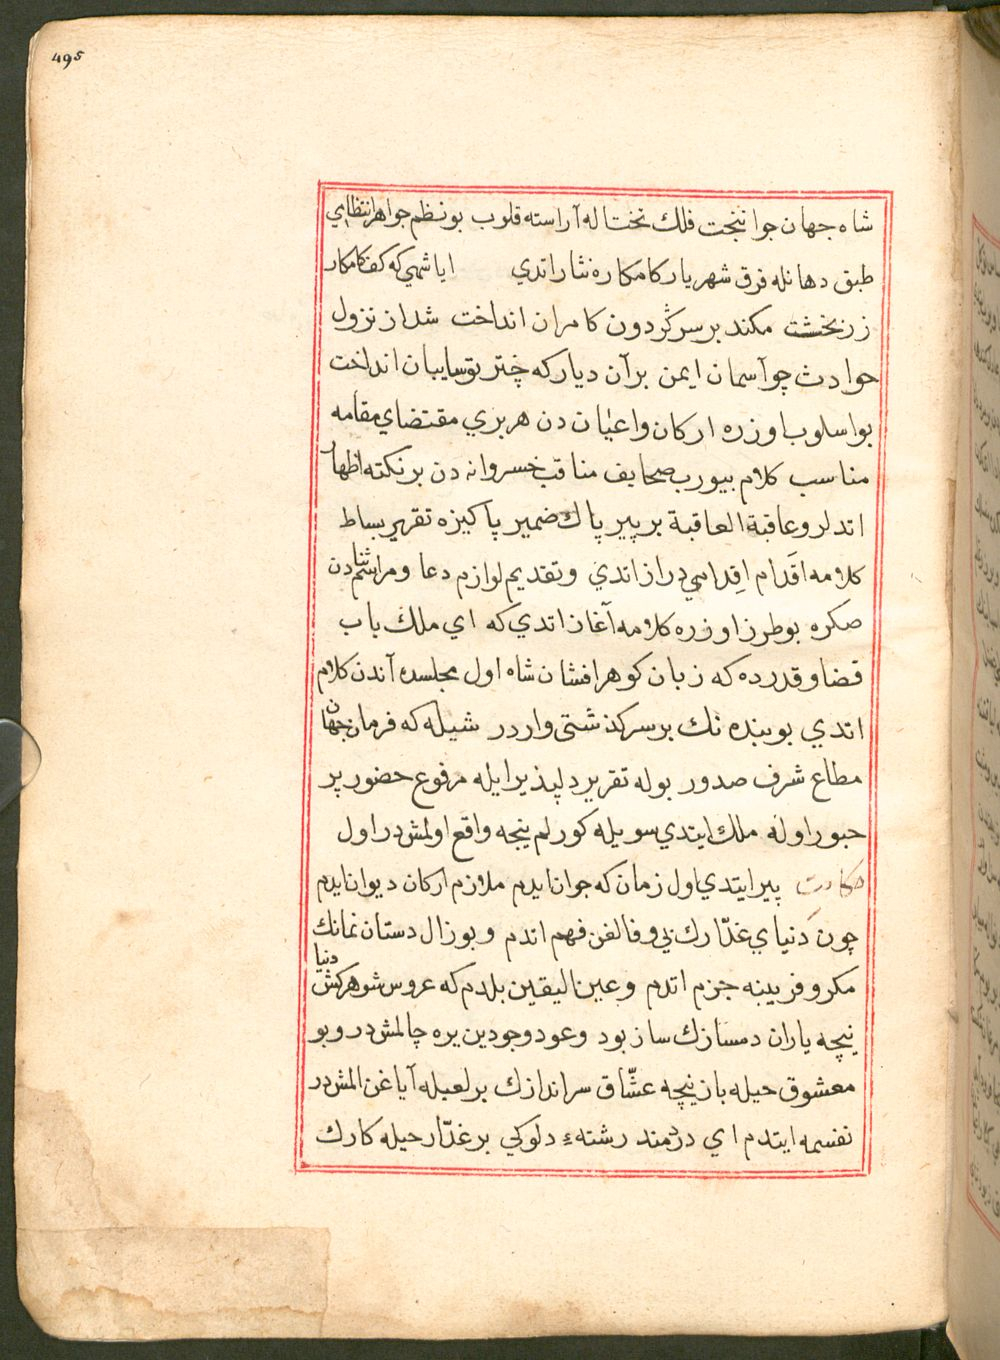 495
شاه جهان جوانبخت فلك تختاله آراسته قلوب بونظم جواهر انتظامي
طبق دهانله فرق شهريار كامكاره نثار اتدي ايا شهي كه كف كامكار
زربخشت مكند بر سر گردون كامران انداخت شد از نزول
حوادث چو آسمان ايمن بر آن ديار كه چتر تو سايبان انداخت
بو اسلوب اوزره اركان واعيان دن هر بري مقتضاي مقامه
مناسب كلام بيورب صحايف مناقب خسروانه دن بر نكته اظهار
اتدلر وعاقبة العاقبة بر پير پاك ضمير پاكيزه تقرير بساط
كلامه اقدَام اِقدامي دراز اتدي وتقديم لوازم دعا ومراسم ثنا دن
صكره بو طرز اوزره كلامه آغاز اتدي كه اي ملك باب
قضا وقدرده كه زبان كوهر افشان شاه اول مجلسده آندن كلام
اتدي بو بنده نك بر سركذشتى واردر شيله كه فرمان جهان
مطاع شرف صدور بوله تقرير دلپذير ايله مرفوع حضور پر
حبور اولنه ملك ايتدي سويله كورلم نيجه واقع اولمشدر اول
حكايت پير ايتدي اول زمان كه جوان ايدم ملازم اركان ديوان ايدم
چون دَنياي غدّارك بي وفالغن فهم اتدم وبو زال دستان نمانك
مكر وفريبنه جزم اتدم وعين اليقين بلدم كه عروس شوهركش دنيا
نيچه ياران دمسازك ساز بود وعود وجودين يره چالمشدر وبو
معشوق حيله باز نيچه عشّاق سراندازك بر لعبله آياغن المشدر
نفسمه ايتدم اي دردمند رشتهء دلوكي بر غدّار حيله كارك